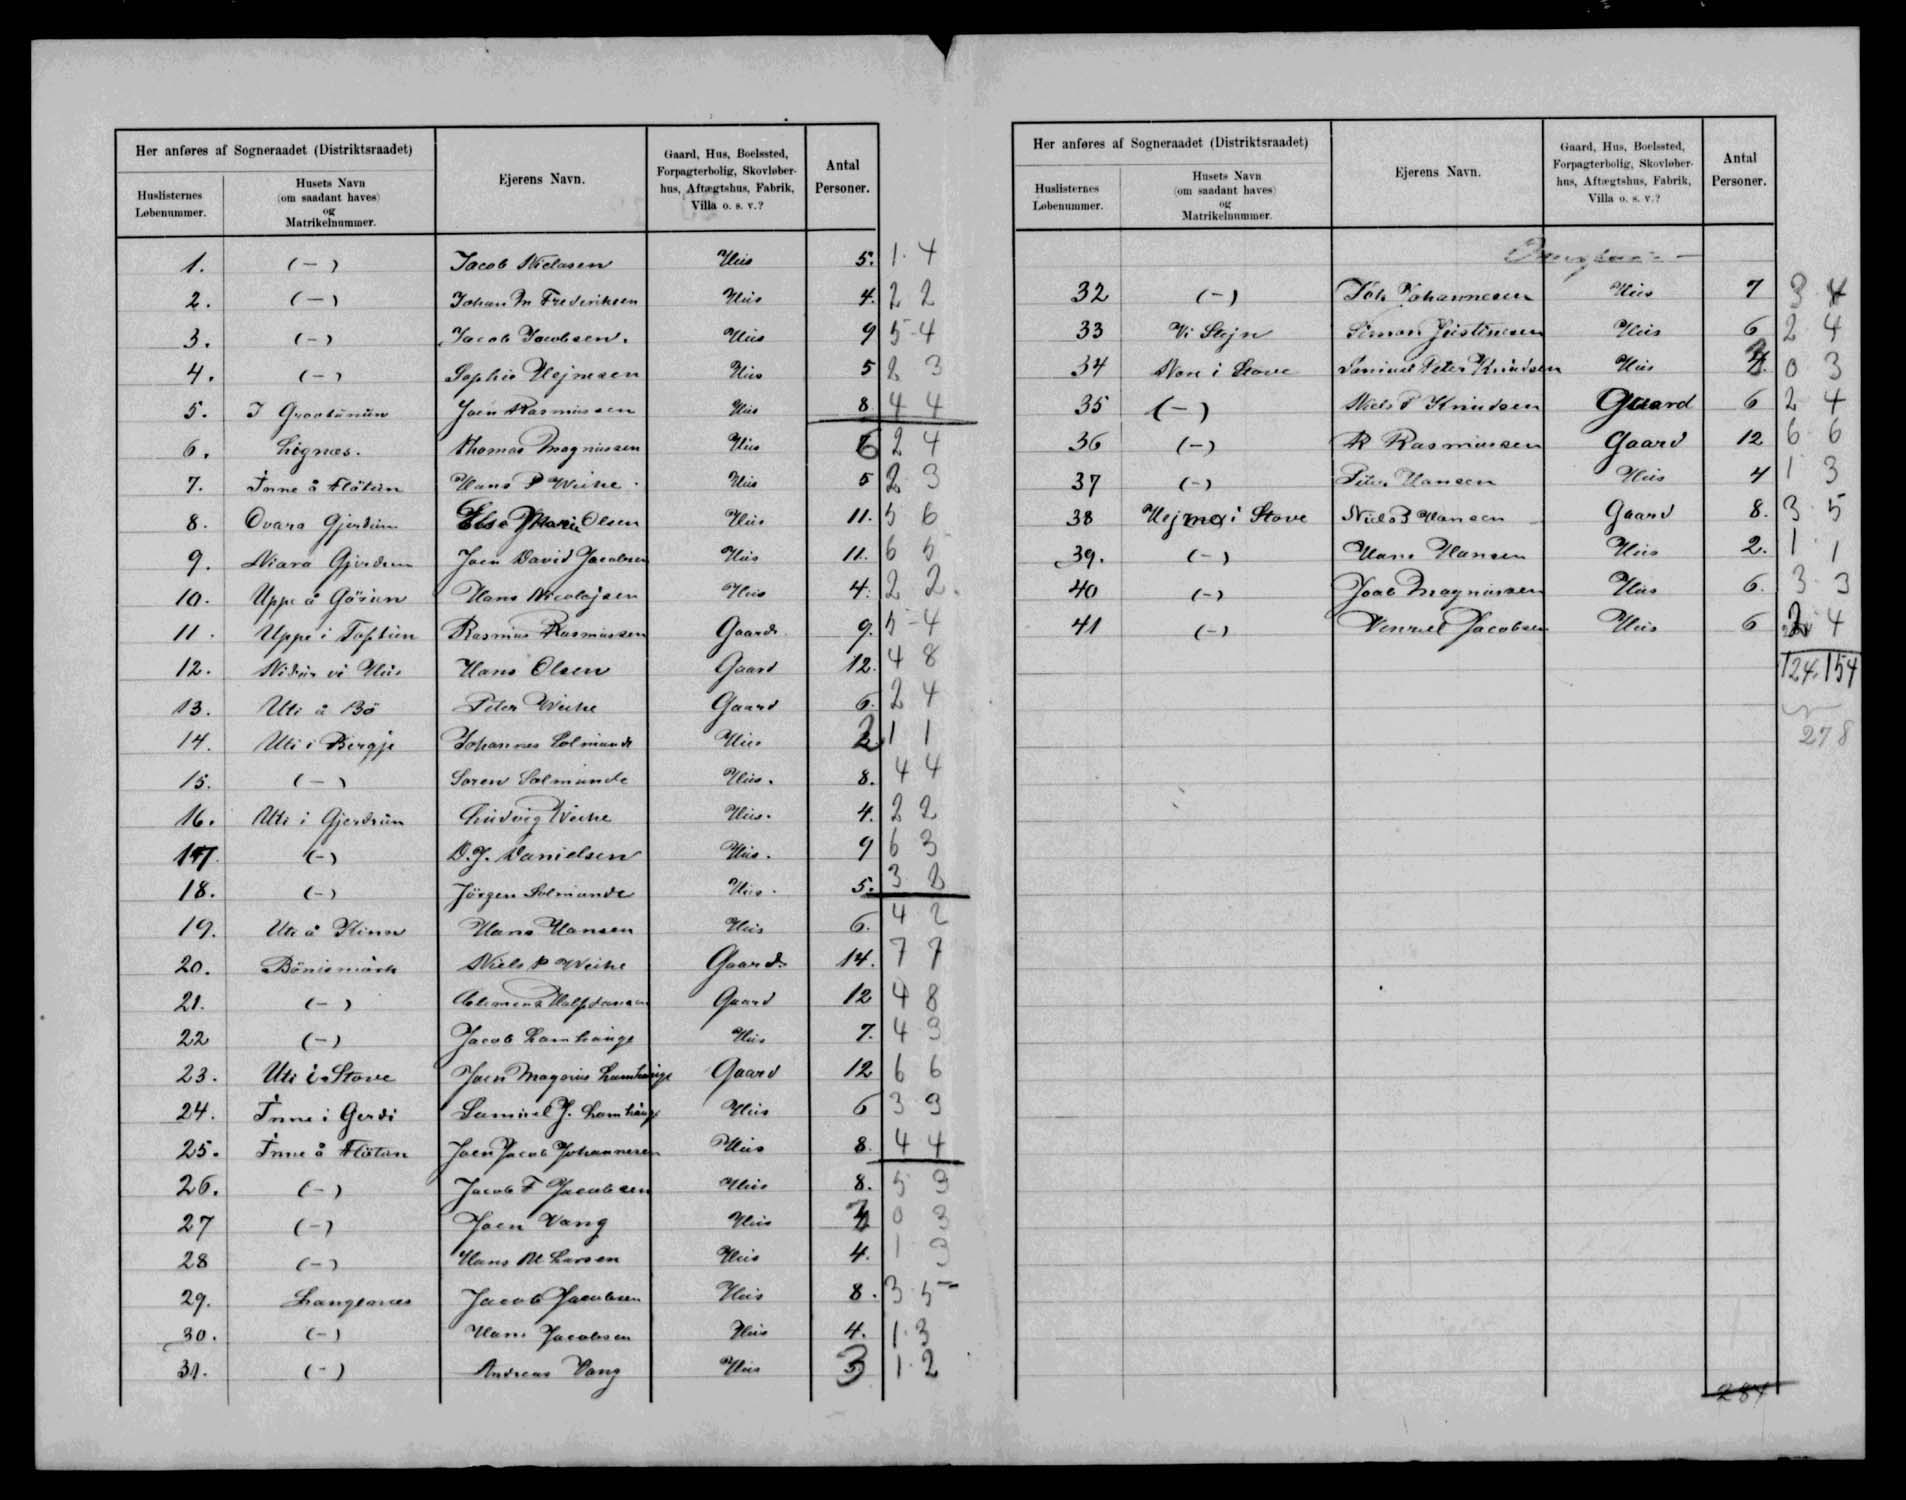 Her anføres af Sogneraadet (Distriktsraadet)
Huslisternes Løbenummer.
Husets Navn (om saadant haves) og Matrikelnummer.
Ejerens Navn.
Gaard, Hus, Boelssted, Forpagterbolig, Skovløberhus, Aftægtshus, Fabrik, Villa o. s. v.?
Antal Personer.
1. (-) Jacob Nielasen Hus 5. 1. 4
2. (-) Johan M Frederiksen Hus 4. 2 2
3. (-) Jacob Jacobsen. Hus 9 5-4
4. (-) Sophie Hejnesen Hus 5 2 3
5. I Joen Rasmussen Hus 8 4 4
6. Lignæs. Thomas Magnussen Hus 6 2 4
7. Inne å Flötun Hans P Weihe Hus 5 2 3
8. Ovara Gjerdun Else Marie Olsen Hus 11. 5 6
9. Niara Gjerdun Joen David Jacobsen Hus 11. 6 5
10. Uppe å Görun Hans Nicolajsen Hus 4. 2 2.
11. Uppe i Toftun Rasmus Rasmussen Gaard. 9. 5-4
12. Nidur vi Hus Hans Olsen Gaard 12. 4 8
13. Uti å Bö Peter Weihe Gaard 6. 2 4
14. Uti i Bergje Johannes Solmunde Hus 2 1 1
15. (-) Soren Solmunde Hus. 8. 4 4
16. Uti i Gjerdrun Ludvig Weihe Hus. 4. 2 2
17. (-) D. J. Danielsen Hus. 9 6 3
18. (-) Jörgen Solmunde Hus. 5. 3 2
19. Uti å Hans Hansen Hus 6. 4 2
20. Niels P Weihe Gaard. 14. 7 7
21. (-) Clemens Halfdansen Gaard 12 4 8
22 (-) Jacob Lamhauge Hus 7. 4 3
23. Uti i Stove Joen Magnus Lamhauge Gaard 12 6 6
24. Inne i Gerdi Samuel J. Lamhauge Hus 6 3 3
25. Inne å Flötun Joen Jacob Johannesen Hus 8. 4 4
26. (-) Jacob F Jacobsen Hus 8. 5 3
27 (-) Joen Vang Hus 0 3
28 (-) Hans M Larsen Hus 4. 1 3
29. Langenæs Jacob Jacobsen Hus 8. 3. 5
30. (-) Hans Jacobsen Hus 4. 1. 3
31. (-) Andreas Vang Hus 3 1. 2
Her anføres af Sogneraadet (Distriktsraadet)
Huslisternes Løbenummer.
Husets Navn (om saadant haves) og Matrikelnummer.
Ejerens Navn.
Gaard, Hus, Boelssted, Forpagterbolig, Skovløberhus, Aftægtshus, Fabrik, Villa o. s. v.?
Antal Personer.
32 (-) Joh Johannesen Hus 7 3 4
33 Vi Stejn Simon Justinesen Hus 6 2 4
34 i Stove Samuel Peter Knudsen Hus 0 3
35 (-) Niels P Knudsen Gaard 6 2 4
36 (-) R Rasmussen Gaard 12 6 6
37 (-) Peter Hansen Hus 4 1 3
38 Hejma i Stove Niels Hansen Gaard 8. 3. 5
39. (-) Hans Hansen Hus 2. 1 1
40 (-) Joab Magnussen Hus 6. 3. 3
41 (-) Jacobsen Hus 6 2 4
124. 154
278
284